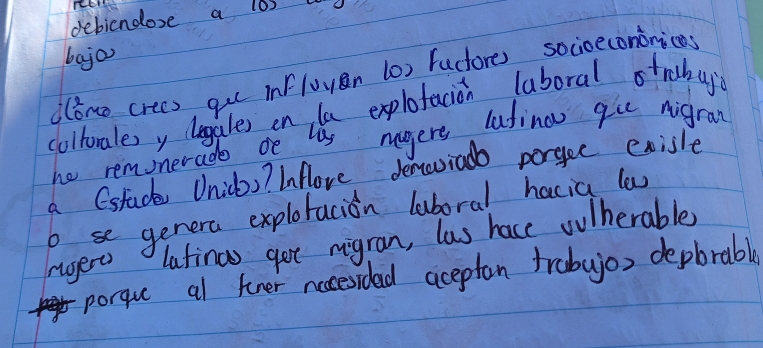 debiendose a los
bajos
¿Cómo crees que influyen los factores socioeconómicos
culturales y legales en la explotación laboral o trabajo
no remunerado de las mujere latinas que migran
a Estados Unidos? Inflove demaciado porque existe
o se genera explotación laboral hacia las
mujeres latinas que migran, las hace vulnerables
porque al tener nacesidad aceptan trabujos deplorable